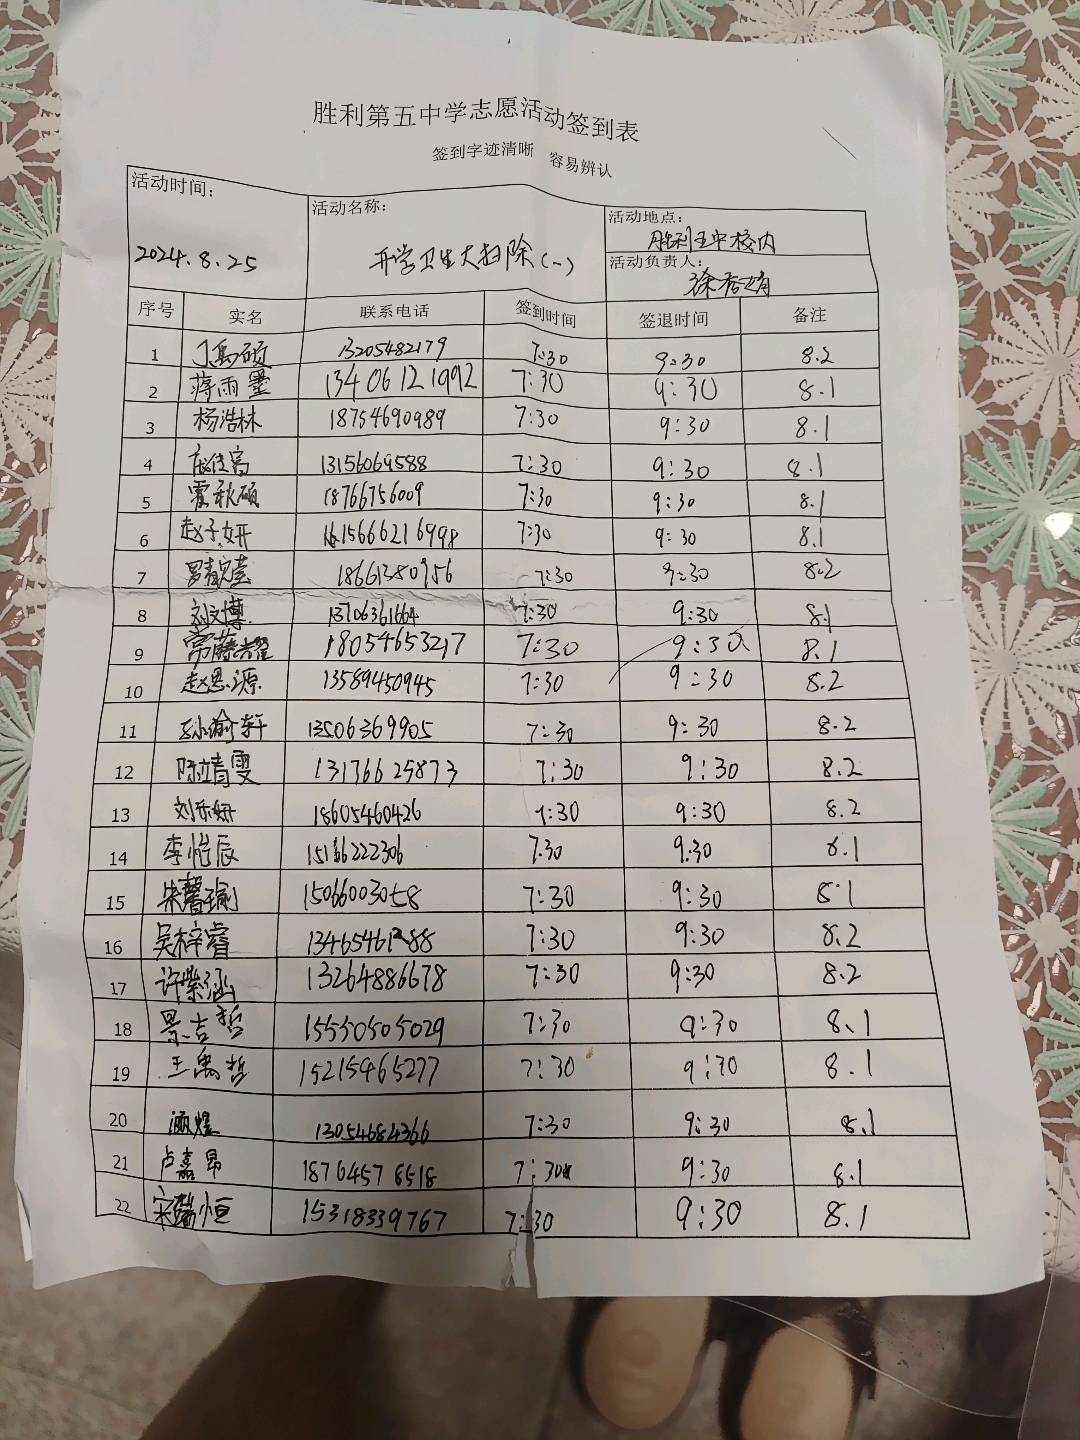 胜利第五中学志愿活动签到表
签到字迹清晰 容易辨认
活动时间: 2024.8.25
活动名称: 开学卫生大扫除(一)
活动地点: 胜利五中校内
活动负责人:
序号 实名 联系电话 签到时间 签退时间 备注
1 13205482179 7:30 9:30 8.2
2 蒋雨墨 13406121992 7:30 9:30 8.1
3 杨浩林 18754690989 7:30 9:30 8.1
4 13156069588 7:30 9:30 8.1
5 霍秋硕 18766756009 7:30 9:30 8.1
6 赵子妍 15666216998 7:30 9:30 8.1
7 18661380956 7:30 9:30 8.2
8 刘文博 13706361664 7:30 9:30 8.1
9 18054653217 7:30 9:30 8.1
10 赵思源 13589450945 7:30 9:30 8.2
11 孙渝轩 13506369905 7:30 9:30 8.2
12 陈靖雯 13176625873 7:30 9:30 8.2
13 刘乐妍 18605460426 7:30 9:30 8.2
14 李怡辰 15166222306 7:30 9:30 8.1
15 宋馨瑜 15066003058 7:30 9:30 8.1
16 吴梓睿 7:30 9:30 8.2
17 许紫涵 13264886678 7:30 9:30 8.2
18 景吉哲 15550505029 7:30 9:30 8.1
19 王禹哲 15215465277 7:30 9:30 8.1
20 13054684366 7:30 9:30 8.1
21 卢嘉昂 18764578518 7:30 9:30 8.1
22 宋懿恒 15318339767 7:30 9:30 8.1